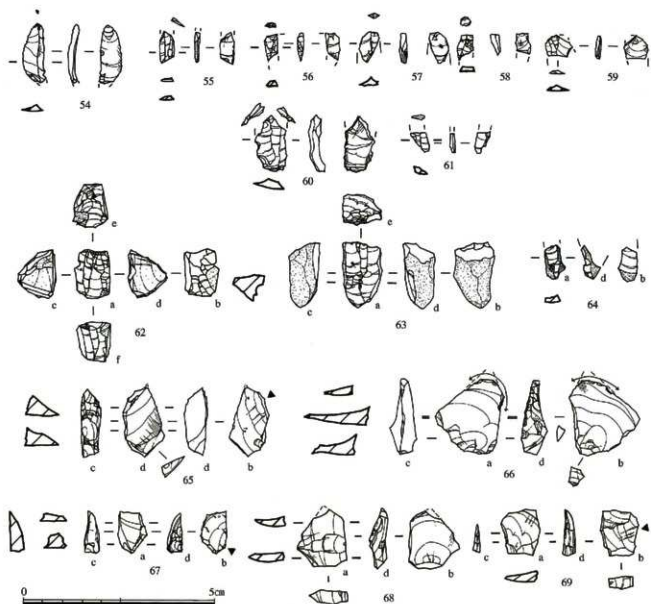 54
55
56
57
58
59
60
61
e
c
a
d
b
f
62
e
c
a
d
b
63
a
d
b
64
c
d
d
b
65
c
a
d
b
66
c
a
d
b
67
a
d
b
68
c
a
d
b
69
0
5cm